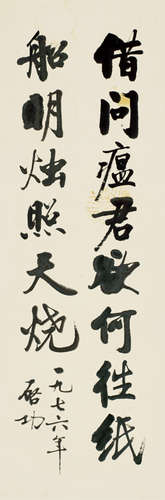 借问瘟君欲何往纸
船明烛照天烧
一九七六年
启功